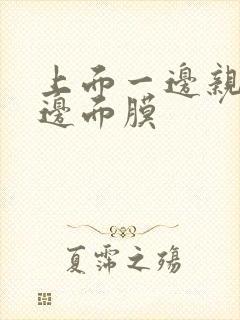 上而一邊親
邊而膜
夏霈之殤